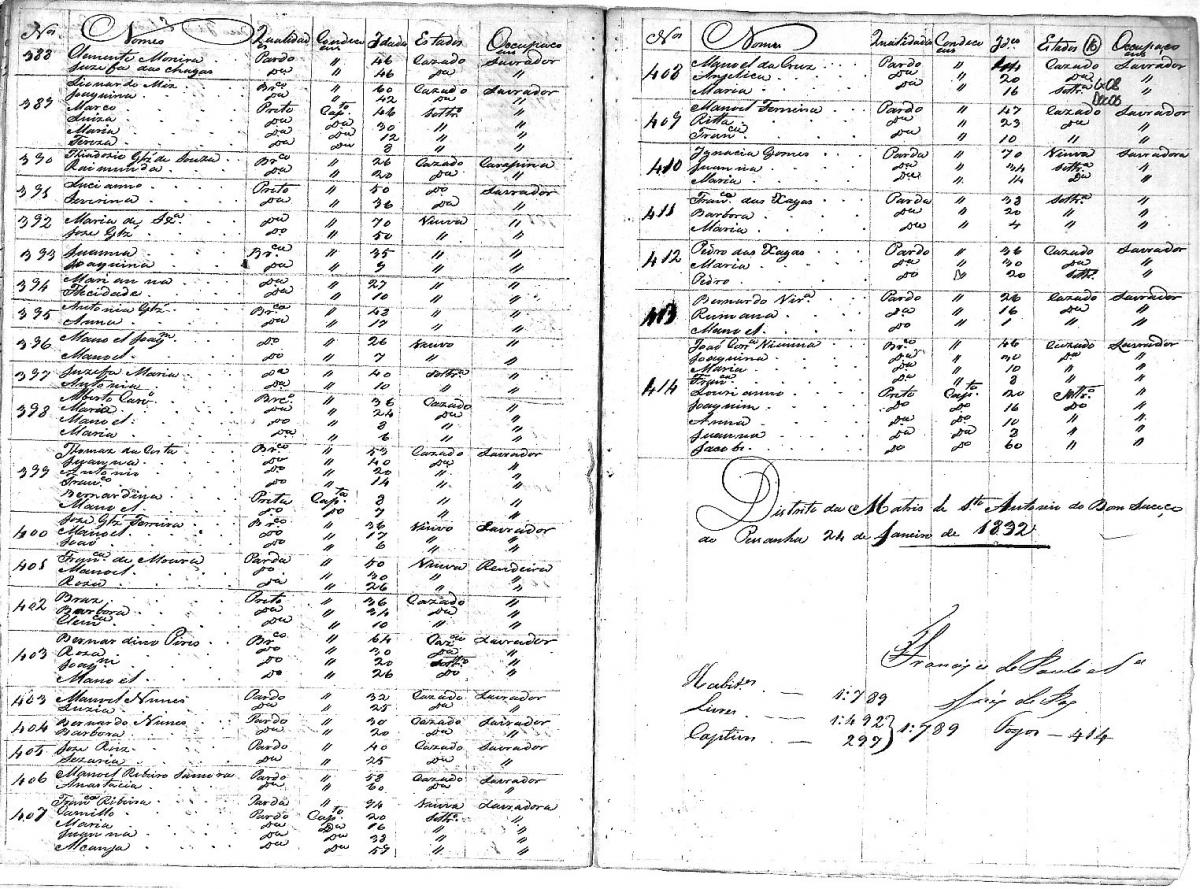 Nos Nomes Qualidades Condecoens Idades Estados Occupaçoens
388 Clemente Moreira Pardo " 46 Cazado Lavrador
Juzefa das Chagas Da " 46 Da "
389 Leonardo Miz Brco " 60 Cazado Lavrador
Joaquina Da " 42 Da "
Marco Preto Capto 46 Soltro "
Luiza Da Da 30 " "
Maria Da Da 12 " "
Tereza Da Da 8 " "
390 Thiadozio Glz de Souza Brco " 26 Cazado Carapina
Raimunda Da " 20 Da "
391 Lucianno Preto " 50 Do Lavrador
Severina Da " 36 Da "
392 Maria de Sza Da " 70 Viuva "
Joze Glz Do " 50 " "
393 Juanna Brca " 35 " "
Joaquina Da " 9 " "
394 Marianna Da " 27 " "
Flicidade Da " 10 " "
395 Antonia Glz Brca " 48 " "
Anna Da " 17 " "
396 Manoel Joaqm Do " 26 Viuvo "
Manoel Do " 7 " "
397 Juzefa Maria Da " 40 Soltra "
Antonia Da " 10 " "
398 Alberto Caro Brco " 36 Cazado "
Maria Da " 24 Da "
Manoel Do " 8 " "
Maria Da " 6 " "
399 Thomaz da Costa Brco " 53 Cazado Lavrador
Juanna Da " 40 Da "
Antonio Do " 20 " "
Franco Do " 14 " "
Bernardina Preta Capta 8 " "
Manoel Do Do 7 " "
400 Joze Glz Ferreira Brco " 36 Viuvo Lavrador
Manoel Do " 17 " "
João Do " 6 " "
401 Franca de Moura Parda " 50 Viuva Rendeira
Manoel Do " 30 " "
Roza Da " 26 " "
402 Braz Preto " 36 Cazado "
Barbora Da " 34 Da "
Clemca Da " 10 " "
403 Bernardino Piris Brco " 64 Cazdo Lavrador
Roza Da " 30 Da "
Joaqm Do " 20 Soltro "
Manoel Do " 26 Do "
403 Manoel Nunes Pardo " 32 Cazado Lavrador
Luzia Da " 25 Da "
404 Bernardo Nunes Pardo " 30 Cazado Lavrador
Barbora Da " 20 Da "
405 Joze Roiz Pardo " 40 Cazado Lavrador
Sezaria Da " 25 Da "
406 Manoel Ribeiro Pardo " 58 Cazado Lavrador
Anastacia Da " 60 Da "
407 Franca Ribeira Parda " 94 Viuva Lavradora
Camillo Pardo Capto 20 Soltro "
Maria Da Da 16 " "
Juanna Da Da 38 " "
Da Da 59 " "
Nos Nomes Qualidades Condecoens Ides Estados 16 Occupaçoens
408 Manoel da Cruz Pardo " 44 Cazado Lavrador
Angelica Da " 20 Da "
Maria Da " 16 Soltra "
409 Manoel Ferreira Pardo " 47 Cazado Lavrador
Ritta Da " 23 Da "
Franca Da " 10 " "
410 Ignacia Gomes Parda " 70 Viuva Lavradora
Juanna Da " 34 Soltra "
Maria Da " 14 Da "
411 Franca das Xagas Parda " 38 Soltra "
Barbora Da " 20 " "
Maria Da " 4 " "
412 Pedro das Xagas Pardo " 36 Cazado Lavrador
Maria Da " 30 Da "
Pedro Do " 20 Soltr "
413 Bernardo Vira Pardo " 26 Cazado Lavrador
Rumana Da " 16 Da "
Manoel Do " 1 " "
414 João Vianna Brco " 46 Cazado Lavrador
Joaquina Da " 30 Da "
Maria Da " 10 " "
Franca Da " 8 " "
Lourianno Preto Capto 20 Soltro "
Joaquim Do Do 16 Do "
Anna Da Da 10 " "
Juanna Da Da 8 " "
Jacobi Do Do 60 " "
Distrito da Matris de Sto Antonio do Bom Suceço
do Pesanha 24 de Janeiro de 1832
Francisco de Paula e Sa
Juiz de Paz
Habites — 1:789
Livres — 1:492
Captivos — 297 } 1:789 Fogos — 414